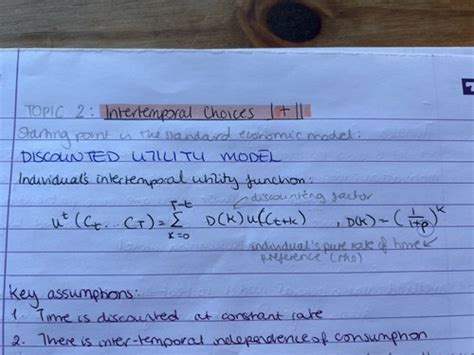 TOPIC 2: Intertemporal Choices I + II
Starting point is the standard economic model:
DISCOUNTED UTILITY MODEL
Individual's intertemporal utility function:
discounting factor
uᵗ(Cₜ...C_T) = Σ_{k=0}^{T-t} D(k)u(C_{t+k}) , D(k) = (1/(1+ρ))^k
individual's pure rate of time
preference (rho)
Key assumptions:
1. Time is discounted at constant rate
2. There is inter-temporal independence of consumption